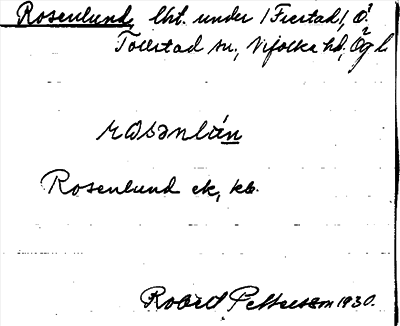 Rosenlund, lht. under /Fierstad/, Ö.
Tollstad sn., Vifolka hd, Ög l.
rωsənlún
Rosenlund ek, kb.
Robert Pettersson 1930.